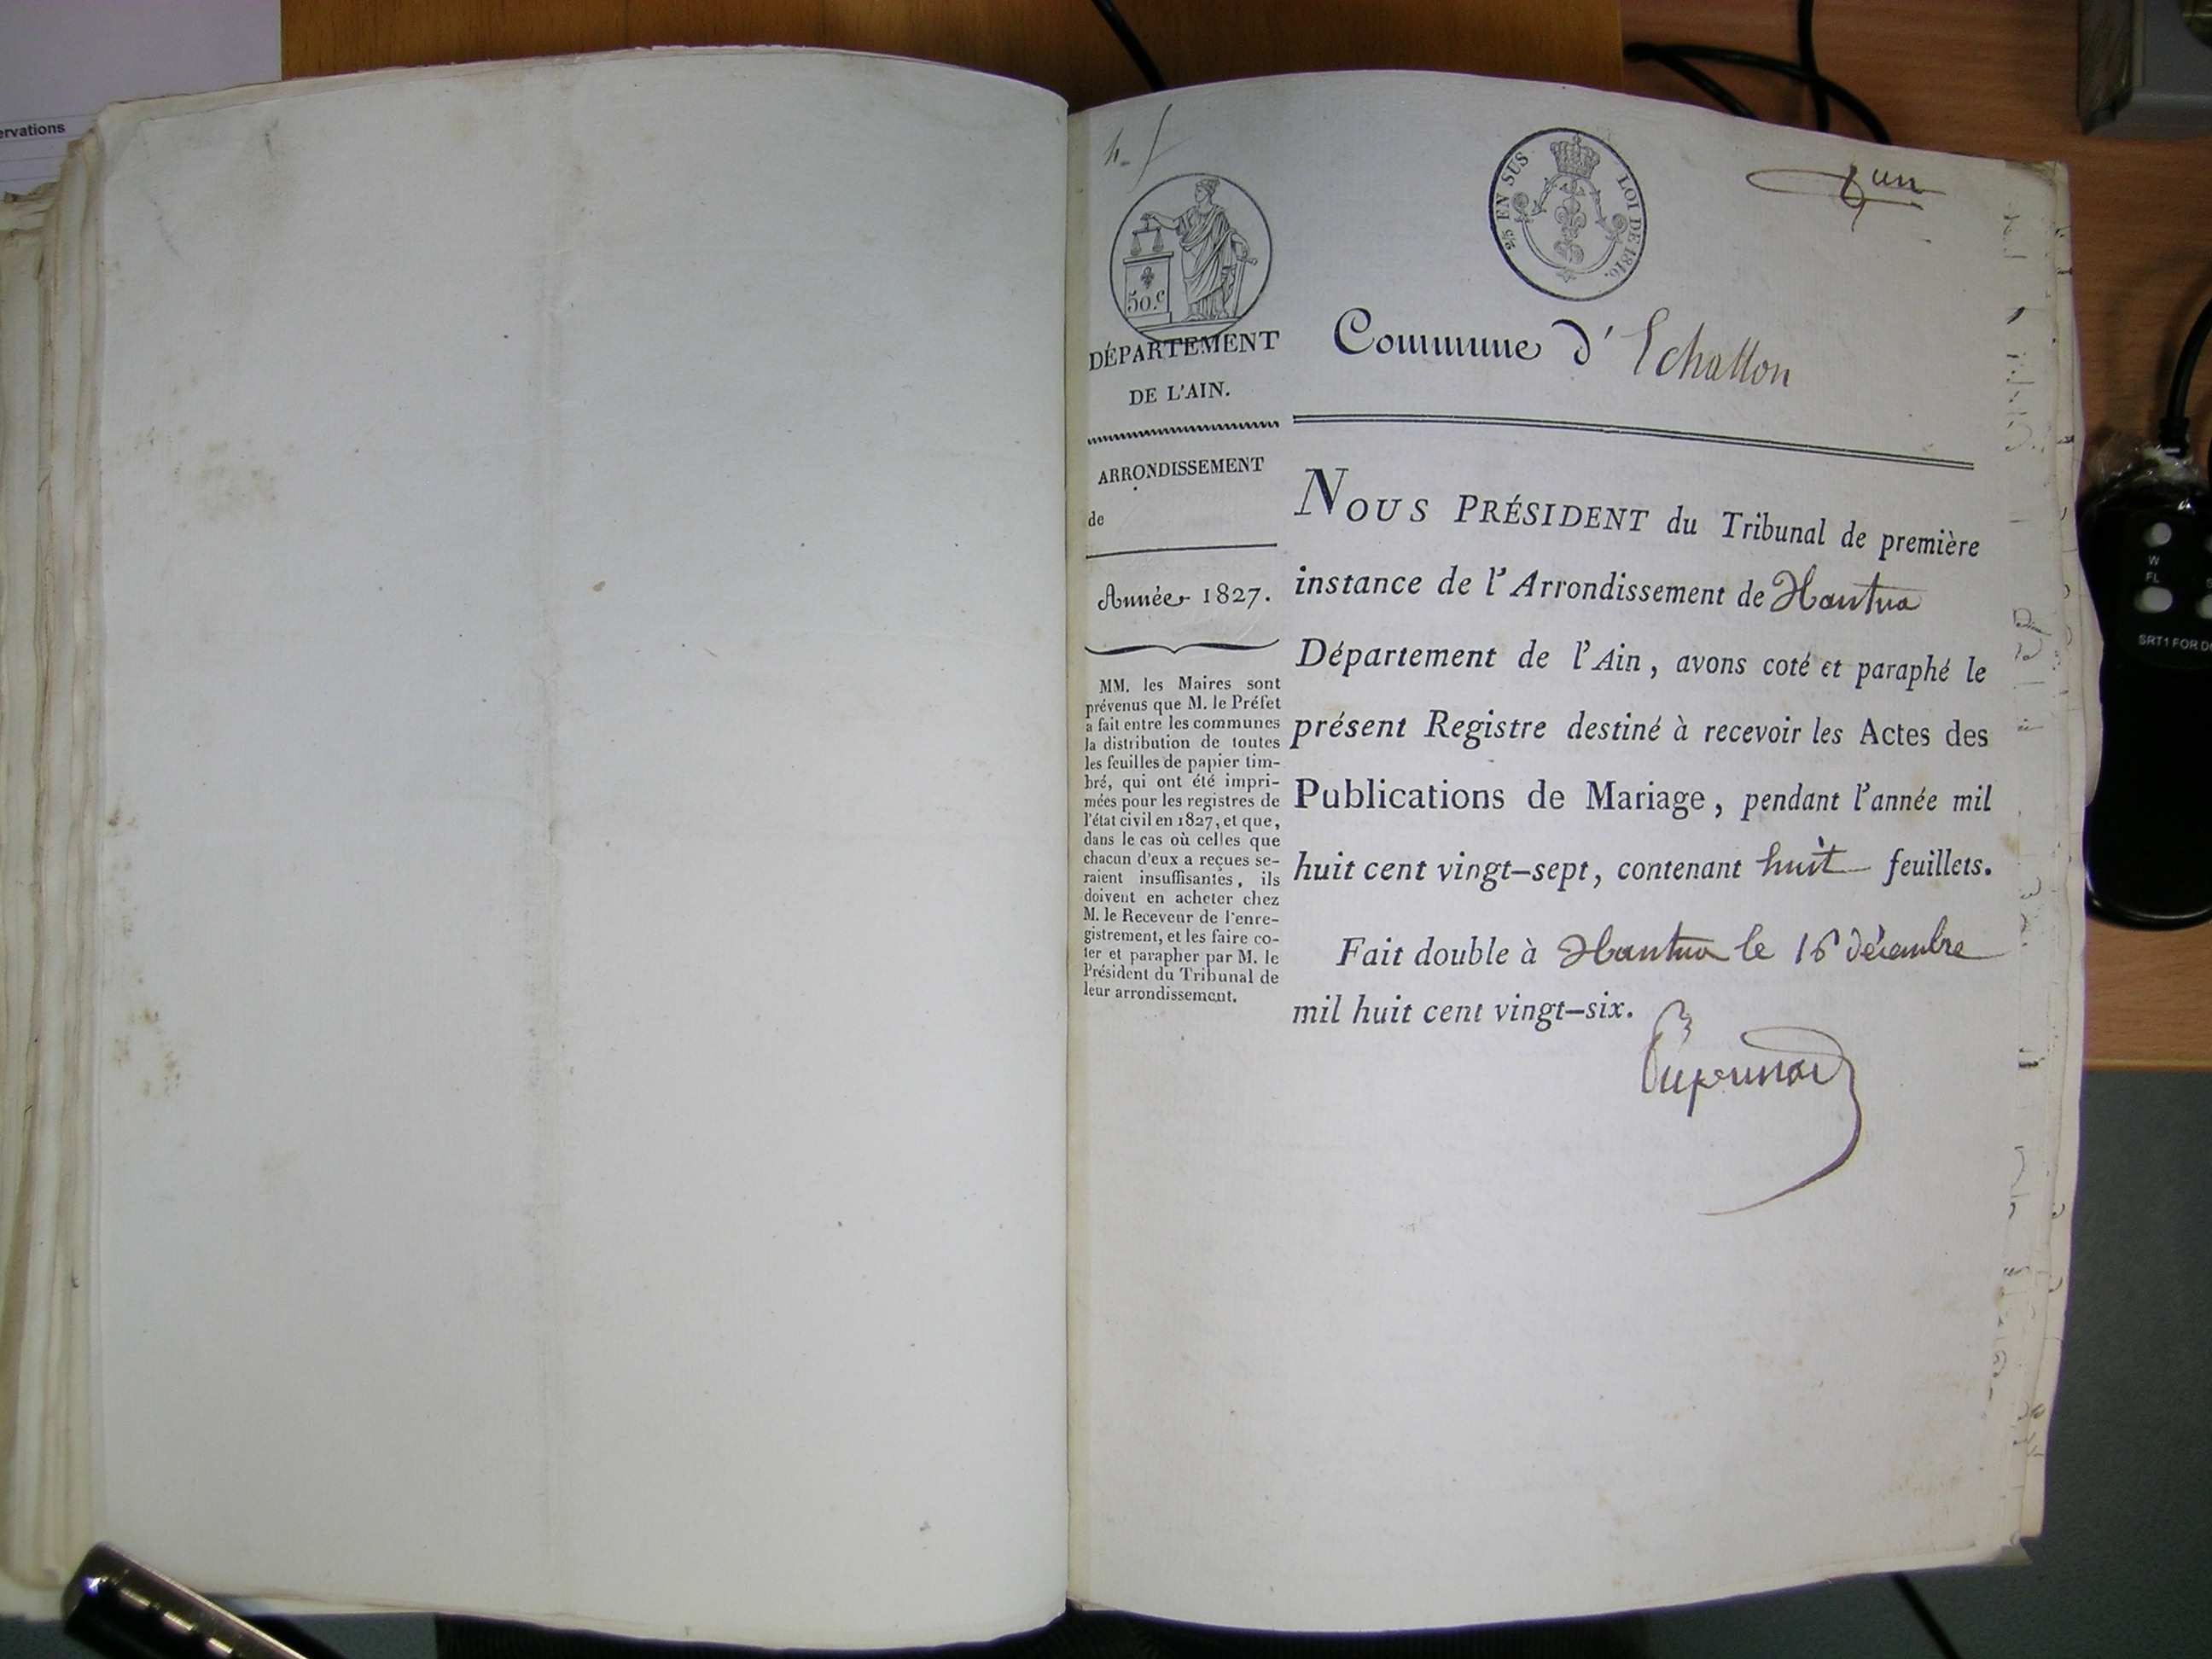 ervations
un
25 EN SUS
LOI DE 1816.
50.c
DÉPARTEMENT
DE L'AIN.
ARRONDISSEMENT
de
Année 1827.
MM. les Maires sont
prévenus que M. le Préfet
a fait entre les communes
la distribution de toutes
les feuilles de papier tim-
bré, qui ont été impri-
mées pour les registres de
l'état civil en 1827, et que,
dans le cas où celles que
chacun d'eux a reçues se-
raient insuffisantes, ils
doivent en acheter chez
M. le Receveur de l'enre-
gistrement, et les faire co-
ter et parapher par M. le
Président du Tribunal de
leur arrondissement.
Commune d'Echallon
NOUS PRÉSIDENT du Tribunal de première
instance de l'Arrondissement de Nantua
Département de l'Ain, avons coté et paraphé le
présent Registre destiné à recevoir les Actes des
Publications de Mariage, pendant l'année mil
huit cent vingt-sept, contenant huit feuillets.
Fait double à Nantua le 16 décembre
mil huit cent vingt-six.
W
FL